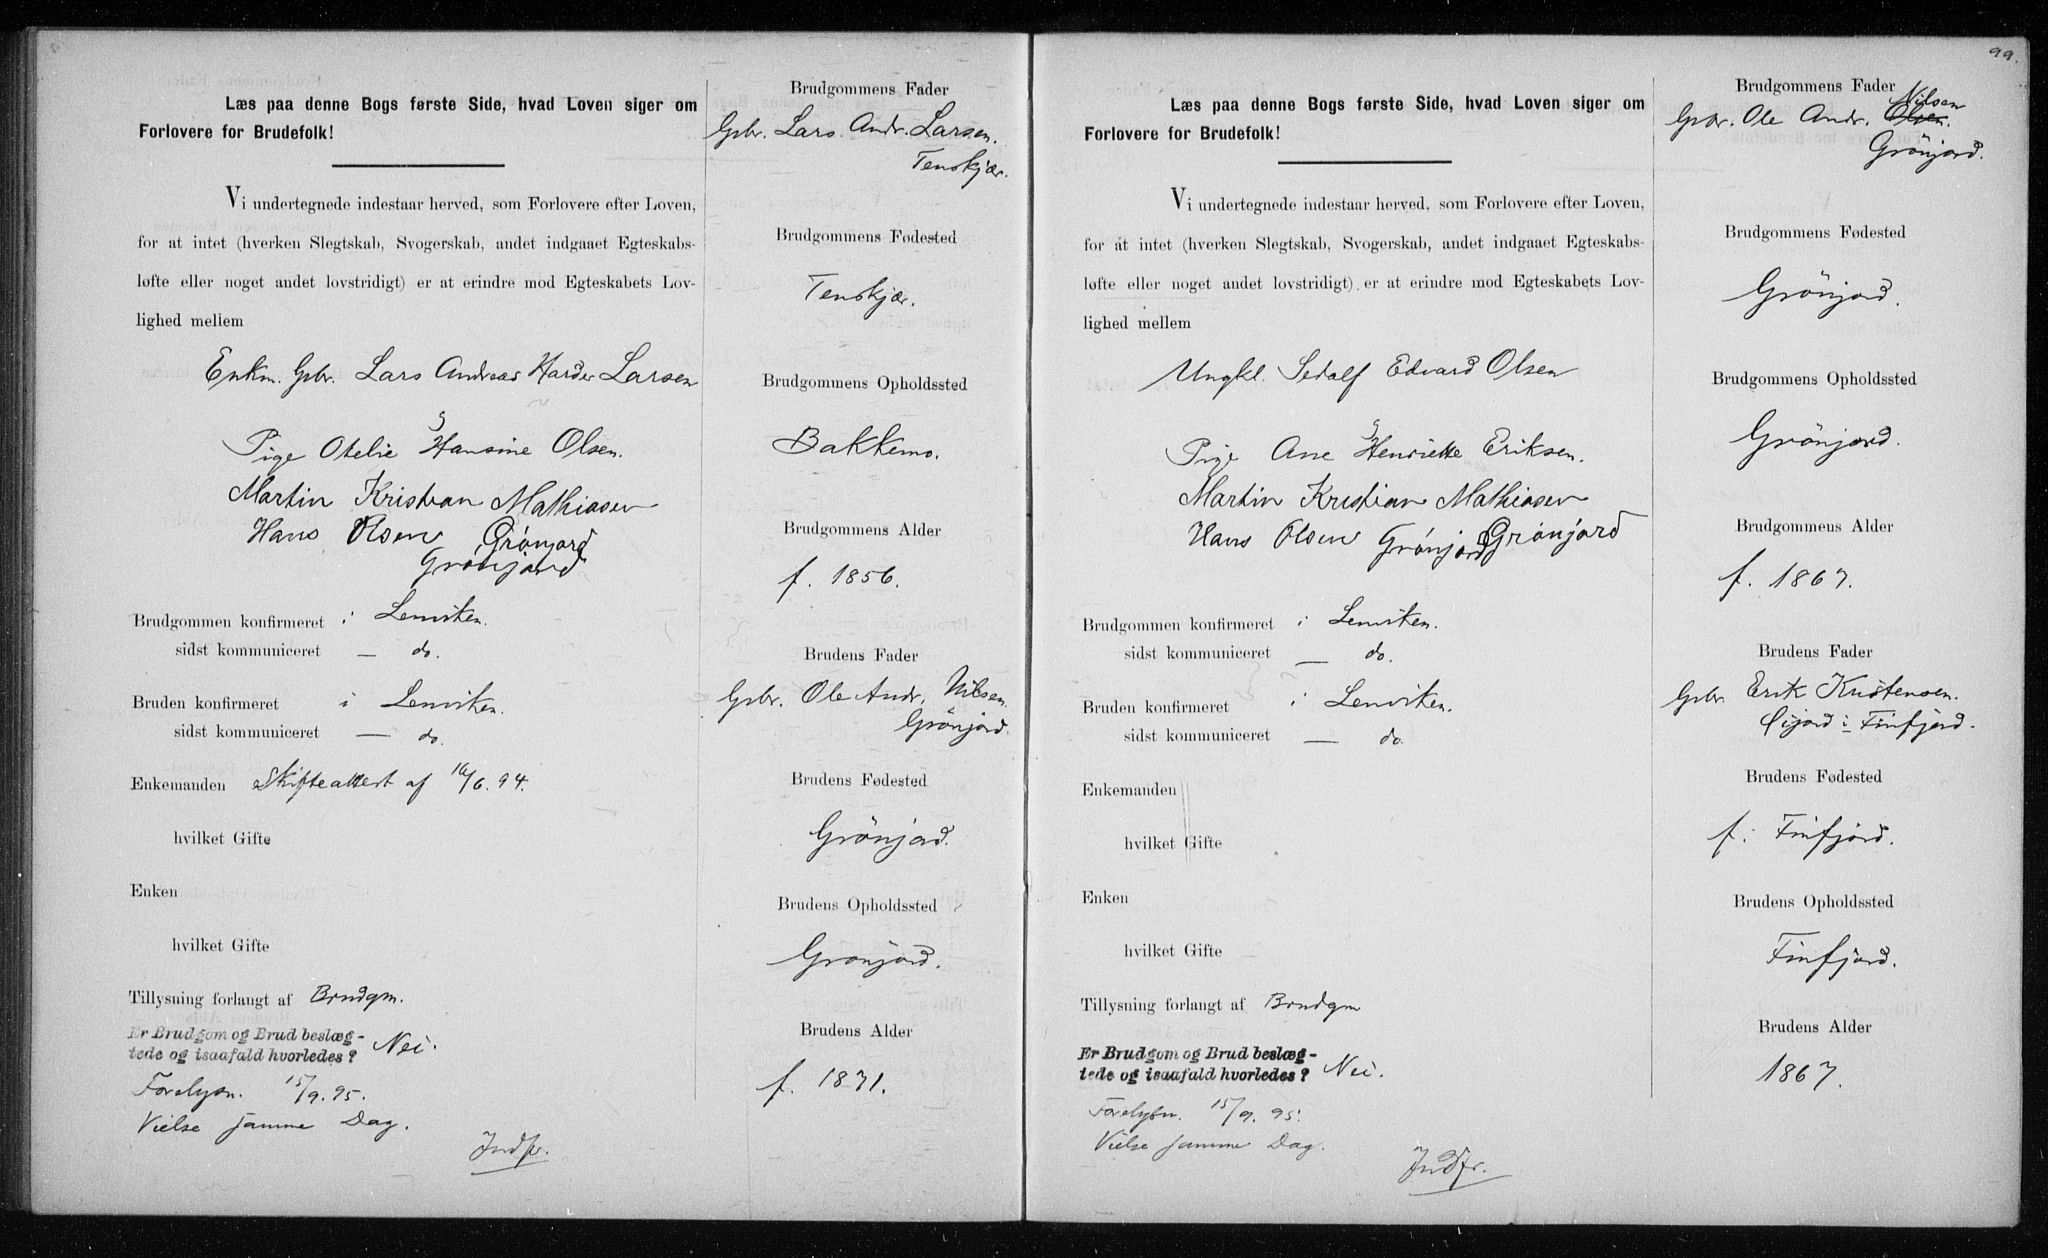 Læs paa denne Bogs første Side, hvad Loven siger om
Forlovere for Brudefolk!
Vi undertegnede indestaar herved, som Forlovere efter Loven,
for at intet (hverken Slegtskab, Svogerskab, andet indgaaet Egteskabs-
løfte eller noget andet lovstridigt) er at erindre mod Egteskabets Lov-
lighed mellem
Enkm. Gbr. Lars Andreas Harder Larsen
Pige Otelie Hansine Olsen.
Martin Kristian Mathiasen
Hans Olsen Grønjord
Grønjord
Brudgommen konfirmeret i Lenviken.
sidst kommuniceret — do.
Bruden konfirmeret i Lenviken.
sidst kommuniceret — do.
Enkemanden Skifteattest af 16/6. 94.
hvilket Gifte
Enken
hvilket Gifte
Tillysning forlangt af Brudgm.
Er Brudgom og Brud beslæg-
tede og isaafald hvorledes? Nei.
Forelysn. 15/9. 95.
Vielse samme Dag.
Indfr.
Brudgommens Fader
Gbr. Lars Andr. Larsen.
Tenskjær.
Brudgommens Fødested
Tenskjær.
Brudgommens Opholdssted
Bakkemo.
Brudgommens Alder
f. 1856.
Brudens Fader
Gbr. Ole Andr. Nilsen.
Grönjord.
Brudens Fødested
Grönjord.
Brudens Opholdssted
Grönjord.
Brudens Alder
f. 1871.
99.
Læs paa denne Bogs første Side, hvad Loven siger om
Forlovere for Brudefolk!
Vi undertegnede indestaar herved, som Forlovere efter Loven,
for at intet (hverken Slegtskab, Svogerskab, andet indgaaet Egteskabs-
løfte eller noget andet lovstridigt) er at erindre mod Egteskabets Lov-
lighed mellem
Ungkl. Sedolf Edvard Olsen
Pige Ane Henriette Eriksen.
Martin Kristian Mathiasen
Hans Olsen Grønjord Grønjord
Brudgommen konfirmeret i Lenviken.
sidst kommuniceret — do.
Bruden konfirmeret i Lenviken.
sidst kommuniceret — do.
Enkemanden
hvilket Gifte
Enken
hvilket Gifte
Tillysning forlangt af Brudgm
Er Brudgom og Brud beslæg-
tede og isaafald hvorledes? Nei.
Forelysn. 15/9. 95.
Vielse samme Dag.
Indfr.
Brudgommens Fader
Nilsen
Gbr. Ole Andr. Olsen.
Grönjord.
Brudgommens Fødested
Grönjord.
Brudgommens Opholdssted
Grönjord.
Brudgommens Alder
f. 1867.
Brudens Fader
Gbr. Erik Kristensen.
i Finfjord.
Brudens Fødested
f. i Finfjord.
Brudens Opholdssted
Finfjord.
Brudens Alder
1867.